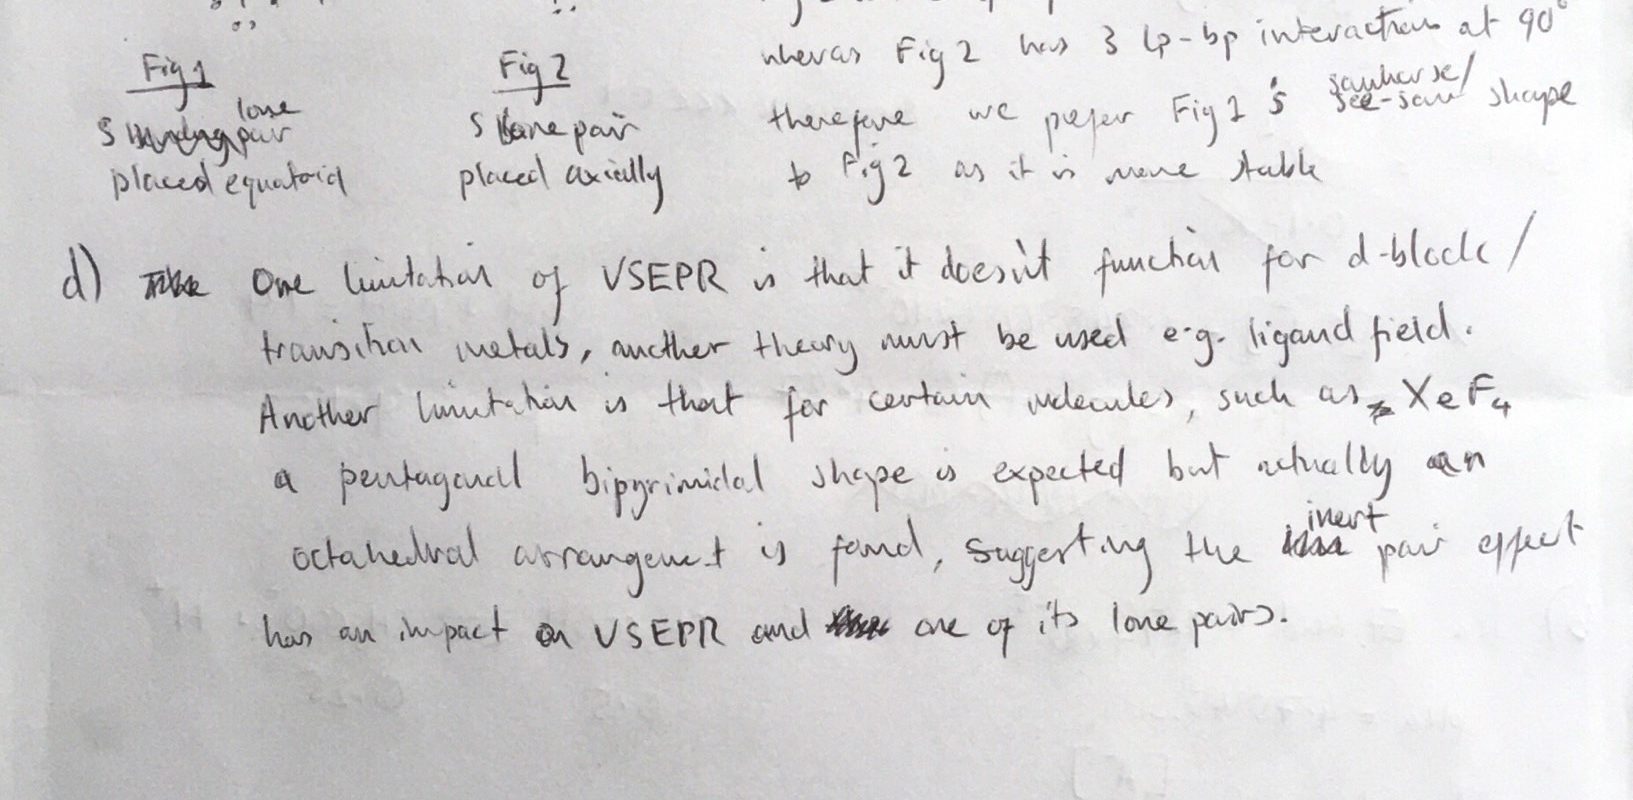 Fig 1
Fig 2
whereas Fig 2 has 3 lp-bp interactions at 90°
lone
S pair
placed equatorial
S lone pair
placed axially
sawhorse/
therefore we prefer Fig 1's see-saw shape
to Fig 2 as it is more stable
d) One limitation of VSEPR is that it doesn't function for d-block/
transition metals, another theory must be used e.g. ligand field.
Another limitation is that for certain molecules, such as XeF4
a pentagonal bipyrimidal shape is expected but actually an
inert
octahedral arrangement is found, suggesting the pair effect
has an impact on VSEPR and one of its lone pairs.